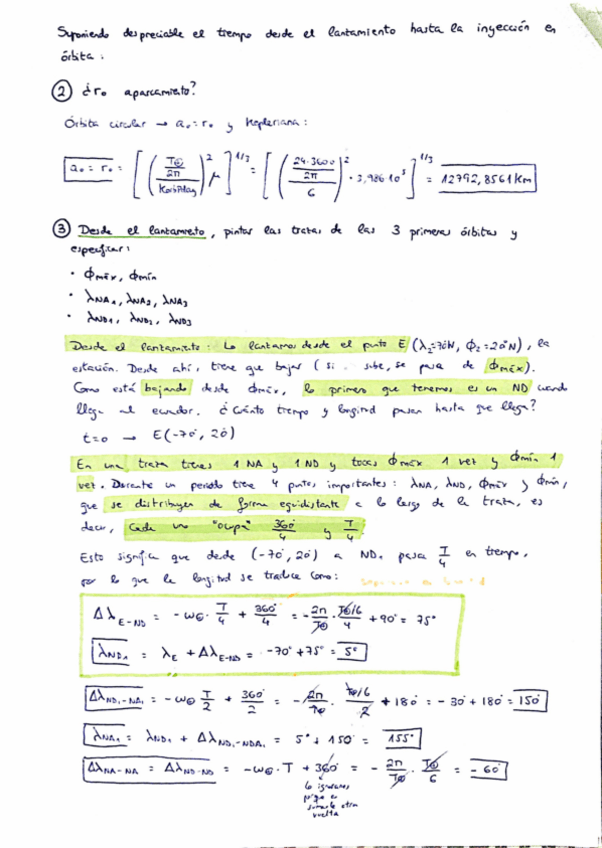 Suponiendo despreciable el tiempo desde el lanzamiento hasta la inyección en
órbita.
② ¿r₀ aparcamiento?
Órbita circular → a₀ = r₀ y Kepleriana:
a₀ = r₀ = [((T⊕/2π)/Korb/day)² μ]^1/3 = [((24·3600/2π)/6)² · 3,986·10⁵]^1/3 = 12792,8561 Km
③ Desde el lanzamiento, pintar las trazas de las 3 primeras órbitas y
especificar:
• ϕmáx, ϕmín
• λNA₁, λNA₂, λNA₃
• λND₁, λND₂, λND₃
Desde el lanzamiento: Lo lanzamos desde el punto E (λ₂=70°N, ϕ₂=20°N), la
estación. Desde ahí, tiene que bajar (si sube, se pasa de ϕmáx).
Como está bajando desde ϕmáx, lo primero que tenemos es un ND cuando
llega al ecuador. ¿Cuánto tiempo y longitud pasan hasta que llega?
t=0 → E(-70°, 20°)
En una traza tienes 1 NA y 1 ND y tocas ϕmáx 1 vez y ϕmín 1
vez. Durante un periodo tiene 4 puntos importantes: λNA, λND, ϕmáx y ϕmín,
que se distribuyen de forma equidistante a lo largo de la traza, es
decir, cada uno "ocupa" 360°/4 y T/4
Esto significa que desde (-70°, 20°) a ND₁ pasa T/4 en tiempo,
por lo que la longitud se traduce como:
Δλ E-ND = -ω⊕ · T/4 + 360°/4 = -2π/T⊕ · T⊕/6/4 + 90° = 75°
λND₁ = λE + ΔλE-ND = -70° + 75° = 5°
ΔλND₁-NA₁ = -ω⊕ T/2 + 360°/2 = -2π/T⊕ · T⊕/6/2 + 180° = -30 + 180° = 150°
λNA₁ = λND₁ + ΔλND₁-NDA₁ = 5° + 150° = 155°
ΔλNA-NA = ΔλND-ND = -ω⊕ · T + 360° = -2π/T⊕ · T⊕/6 = -60°
lo ignoramos
pq es
sumarle otra
vuelta